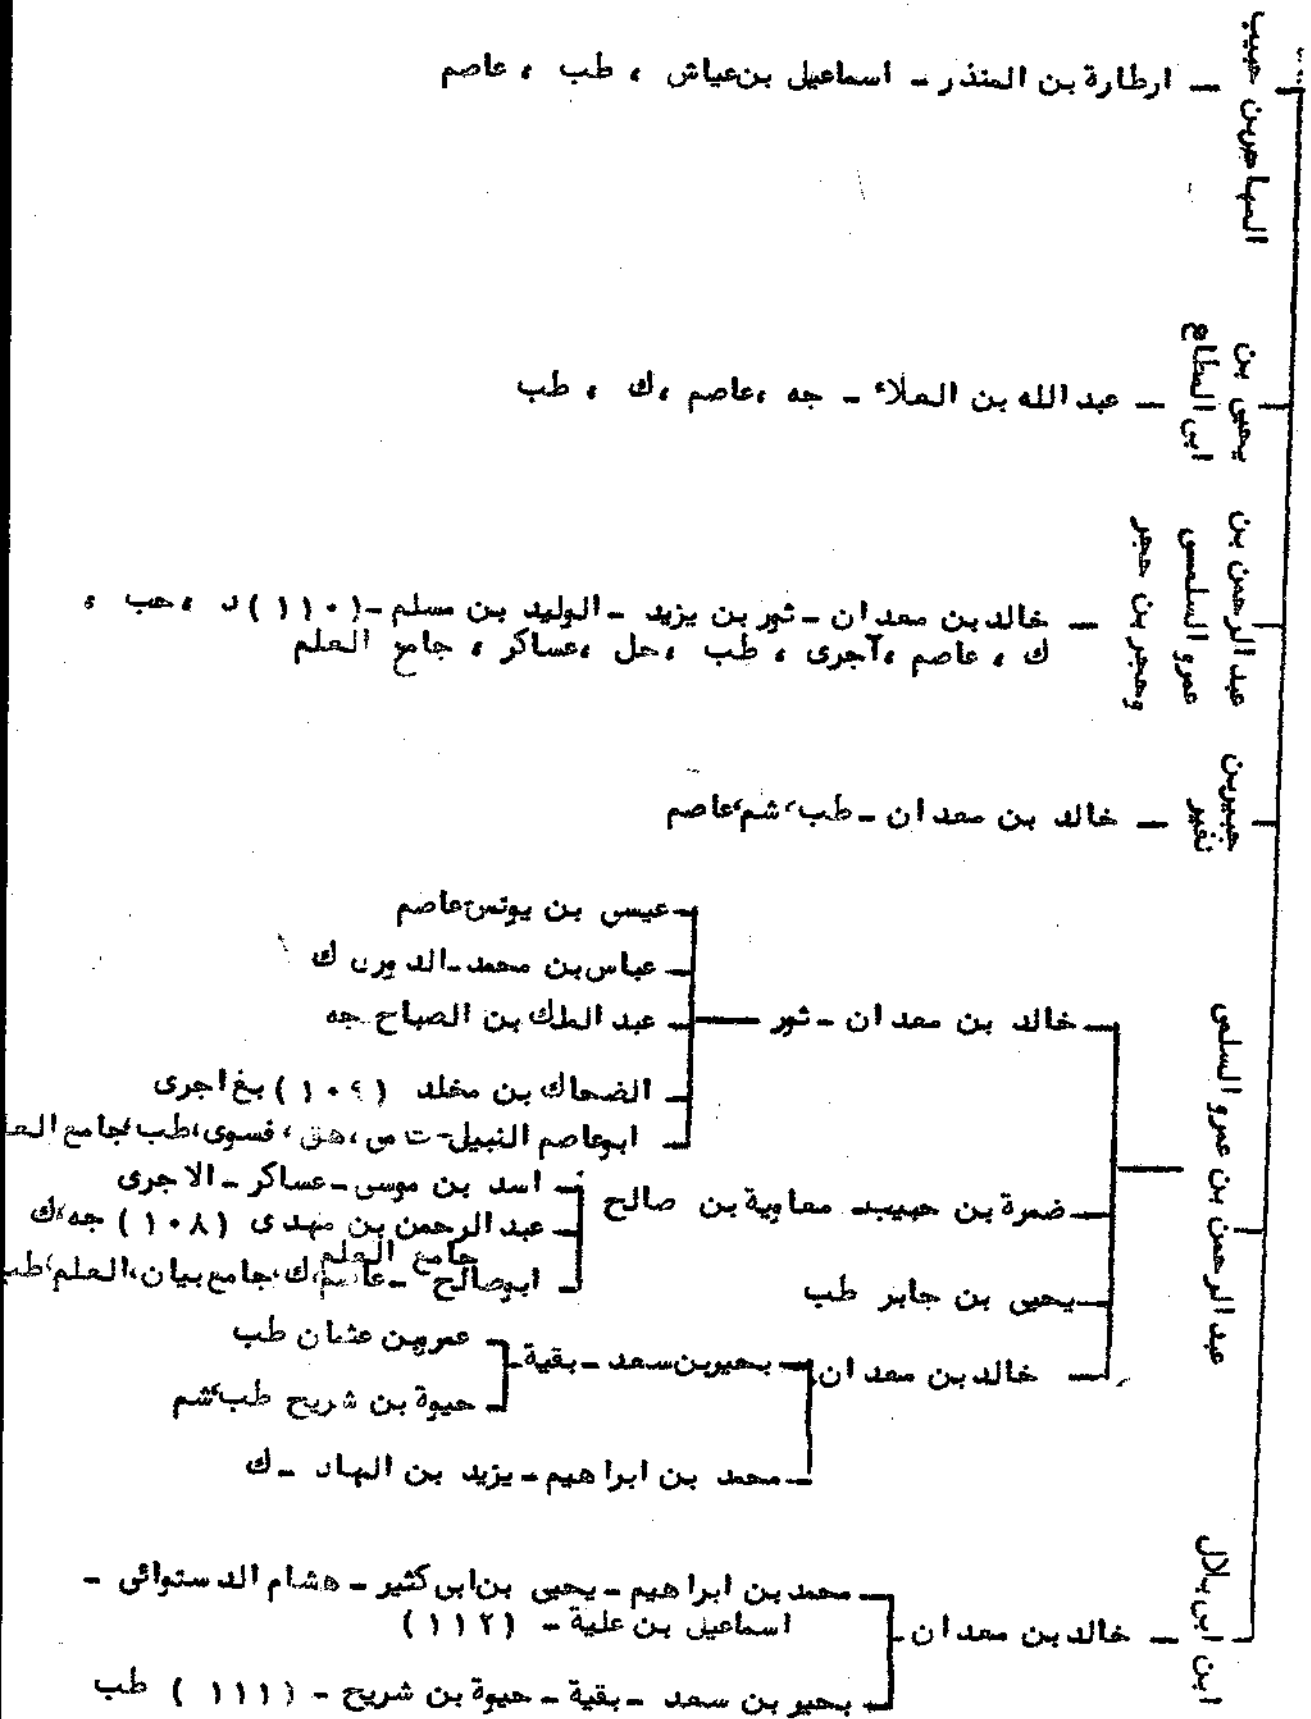 المهاصر بن حبيب
ارطارة بن المنذر - اسماعيل بن عياش ، طب ، عاصم
يحيى بن
ابى المطاع
عبد الله بن العلاء - جه ،عاصم ،ك ، طب
عبد الرحمن بن
عمرو السلمى
وحجر بن حجر
خالد بن معدان - ثور بن يزيد - الوليد بن مسلم - (١١٠) د ، حب ،
ك ، عاصم ،آجرى ، طب ،حل ،عساكر ، جامع العلم
جبير بن
نفير
خالد بن معدان - طب، شم،عاصم
عبد الرحمن بن عمرو السلمى
خالد بن معدان - ثور
عيسى بن يونس عاصم
عباس بن محمد - الدورى ك
عبد الملك بن الصباح جه
الضحاك بن مخلد (١٠٩) بغ اجرى
ابوعاصم النبيل - ت مى ،هق ، فسوى ،طب ،جامع العلـ
ضمرة بن حبيب - معاوية بن صالح
اسد بن موسى - عساكر - الاجرى
عبد الرحمن بن مهدى (١٠٨) جه ،ك
جامع العلم
ابوصالح - عاصم،ك،جامع بيان،العلم،طب
يحيى بن جابر طب
خالد بن معدان
بحير بن سعد - بقية
عمرو بن عثمان طب
حيوة بن شريح طب،شم
محمد بن ابراهيم - يزيد بن الهاد - ك
ابن ابى بلال
خالد بن معدان
محمد بن ابراهيم - يحيى بن ابى كثير - هشام الدستوائى -
اسماعيل بن علية - (١١٢)
بحير بن سعد - بقية - حيوة بن شريح - (١١١) طب